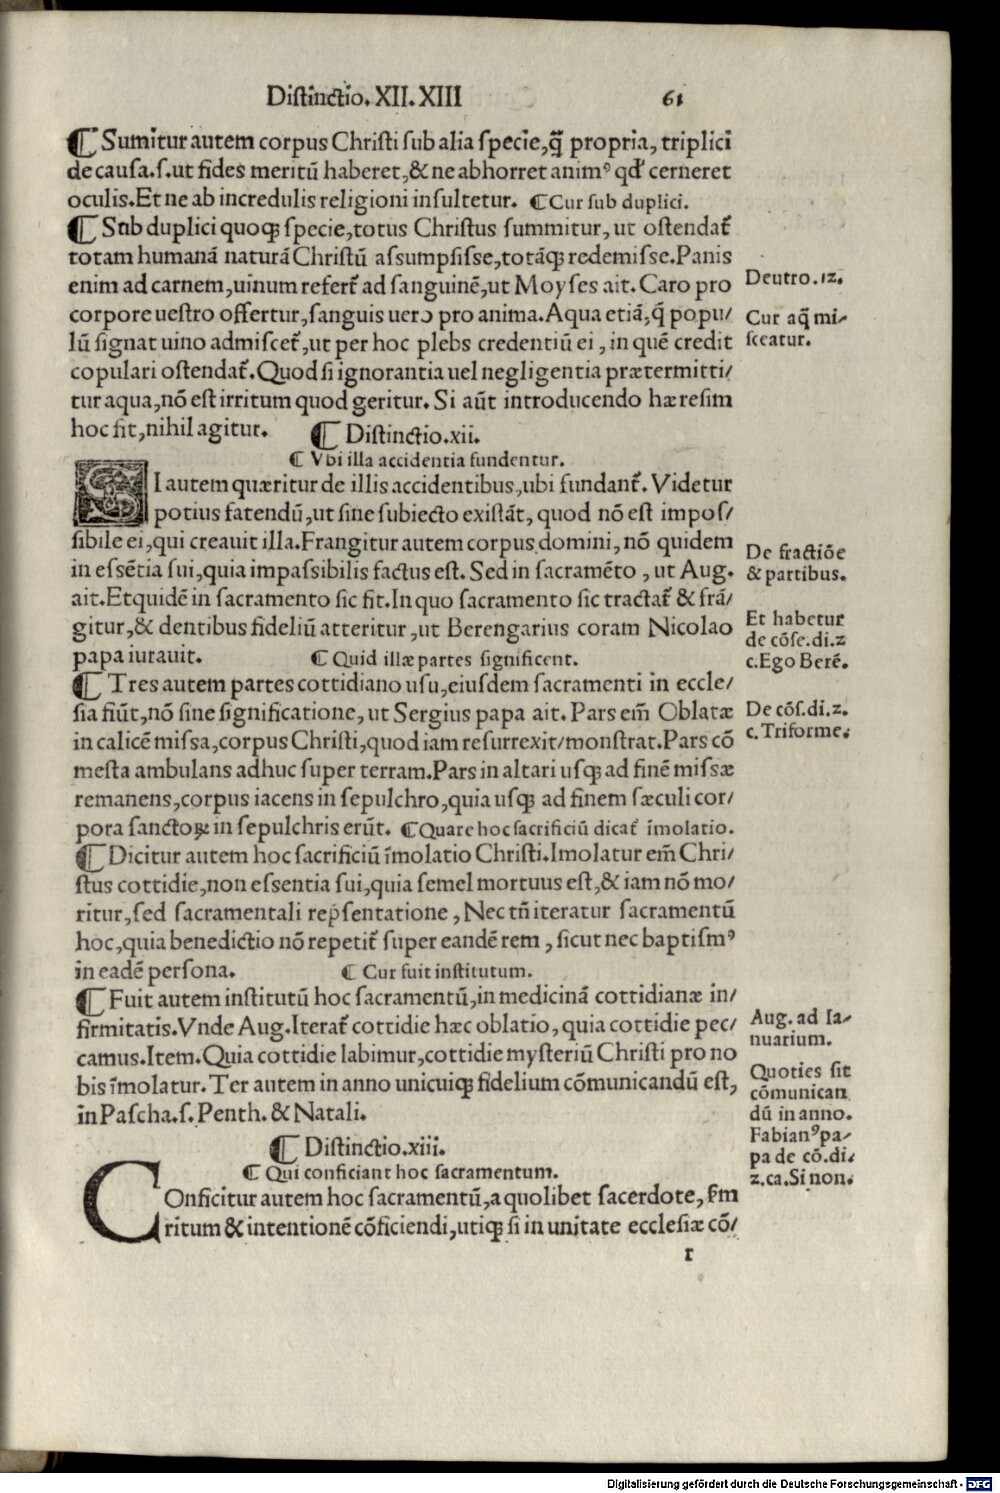 Distinctio. XII. XIII 61
¶ Sumitur autem corpus Christi sub alia specie, q̃ꝫ propria, triplici
de causa. s. ut fides meritũ haberet, & ne abhorret animꝰ qđ cerneret
oculis. Et ne ab incredulis religioni insultetur. ¶ Cur sub duplici.
¶ Sub duplici quoqꝫ specie, totus Christus summitur, ut ostendat᷑
totam humanã naturã Christũ assumpsisse, totãqꝫ redemisse. Panis
enim ad carnem, uinum refert᷑ ad sanguinẽ, ut Moyses ait. Caro pro
Deutro. 12.
corpore uestro offertur, sanguis uero pro anima. Aqua etiã, q̃ popu/
Cur aq̃ mi-
lũ signat uino admiscet᷑, ut per hoc plebs credentiũ ei, in quẽ credit
sceatur.
copulari ostendat᷑. Quod si ignorantia uel negligentia prætermitti/
tur aqua, nõ est irritum quod geritur. Si aũt introducendo hæresim
hoc fit, nihil agitur. ¶ Distinctio. xii.
¶ Vbi illa accidentia fundentur.
SI autem quæritur de illis accidentibus, ubi fundant᷑. Videtur
potius fatendũ, ut sine subiecto existãt, quod nõ est impos/
sibile ei, qui creauit illa. Frangitur autem corpus domini, nõ quidem
De fractiõe
in essẽtia sui, quia impassibilis factus est. Sed in sacramẽto, ut Aug.
& partibus.
ait. Et quidẽ in sacramento sic fit. In quo sacramento sic tractat᷑ & frã/
Et habetur
gitur, & dentibus fideliũ atteritur, ut Berengarius coram Nicolao
de cõse. di. 2
papa iurauit. ¶ Quid illæ partes significent.
c. Ego Berẽ.
¶ Tres autem partes cottidiano usu, eiusdem sacramenti in eccle/
sia fiũt, nõ sine significatione, ut Sergius papa ait. Pars em̃ Oblatæ
De cõs. di. 2.
in calicẽ missa, corpus Christi, quod iam resurrexit/monstrat. Pars cõ
c. Triforme.
mesta ambulans adhuc super terram. Pars in altari usqꝫ ad finẽ missæ
remanens, corpus iacens in sepulchro, quia usqꝫ ad finem sæculi cor/
pora sanctoꝝ in sepulchris erũt. ¶ Quare hoc sacrificiũ dicat᷑ ĩmolatio.
¶ Dicitur autem hoc sacrificiũ ĩmolatio Christi. Imolatur em̃ Chri/
stus cottidie, non essentia sui, quia semel mortuus est, & iam nõ mo/
ritur, sed sacramentali rep̃sentatione, Nec tñ iteratur sacramentũ
hoc, quia benedictio nõ repetit᷑ super eandẽ rem, sicut nec baptismꝰ
in eadẽ persona. ¶ Cur fuit institutum.
¶ Fuit autem institutũ hoc sacramentũ, in medicinã cottidianæ in/
firmitatis. Vnde Aug. Iterat᷑ cottidie hæc oblatio, quia cottidie pec/
Aug. ad Ia-
camus. Item. Quia cottidie labimur, cottidie mysteriũ Christi pro no
nuarium.
bis ĩmolatur. Ter autem in anno unicuiqꝫ fidelium cõmunicandũ est,
Quoties sit
cõmunican
in Pascha. s. Penth. & Natali.
dũ in anno.
¶ Distinctio. xiii.
Fabianꝰ pa-
¶ Qui conficiant hoc sacramentum.
pa de cõ. di.
COnficitur autem hoc sacramentũ, a quolibet sacerdote, s̃m
2. ca. Si non.
ritum & intentionẽ cõficiendi, utiqꝫ si in unitate ecclesiæ cõ/
r
Digitalisierung gefördert durch die Deutsche Forschungsgemeinschaft - DFG